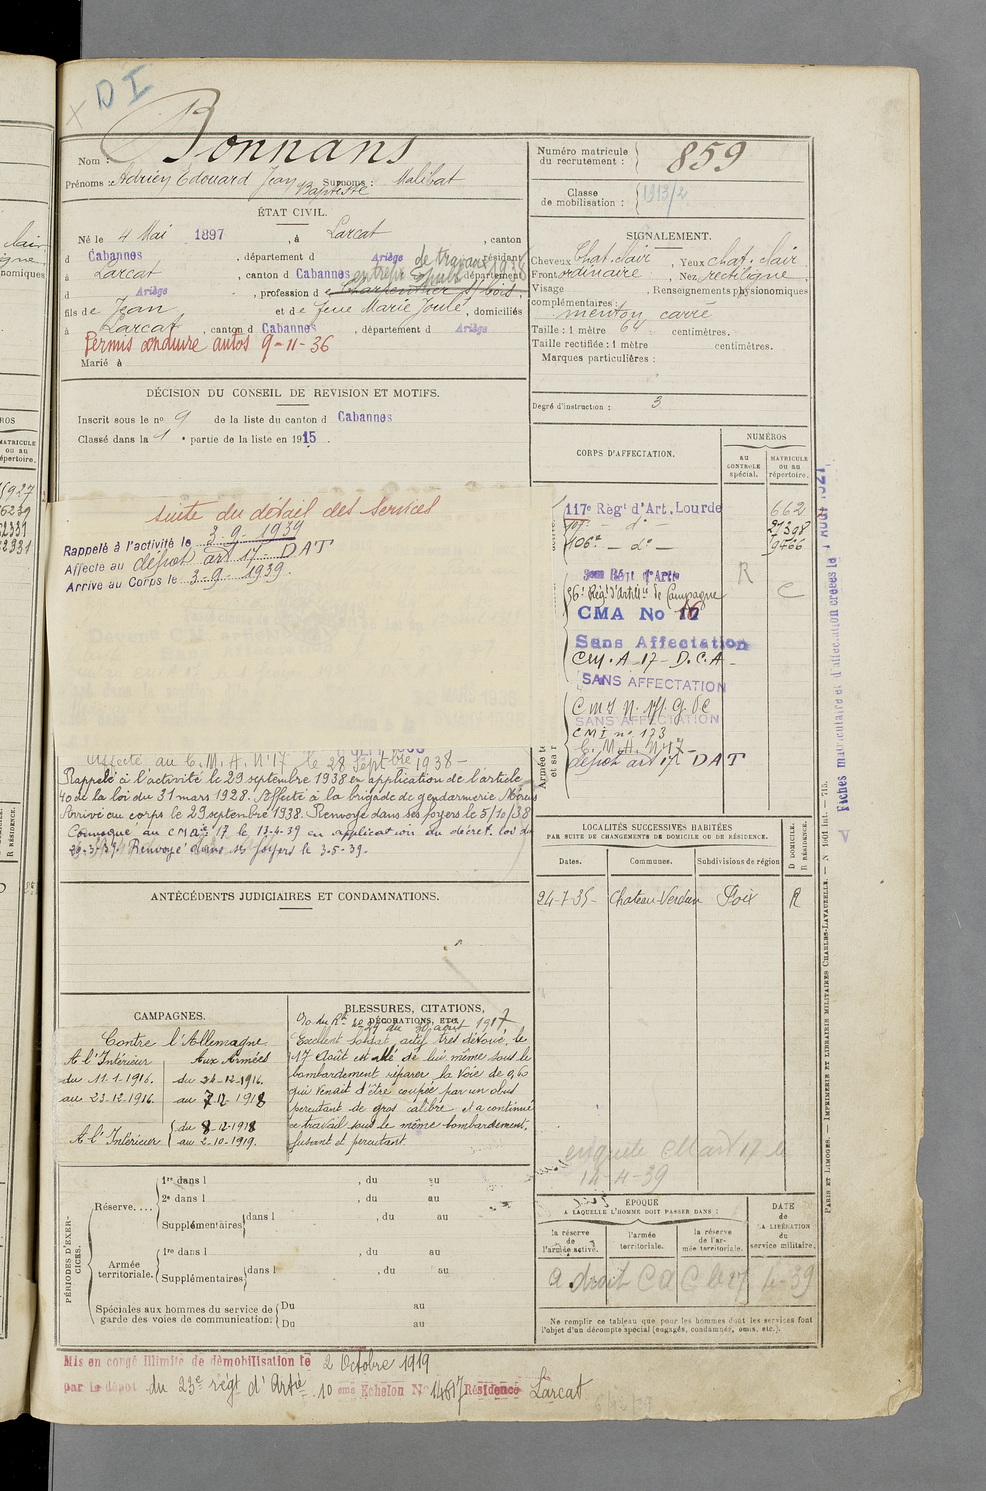 D I
Nom : Bonnans
Prénoms : Adrien Edouard Jean Baptiste Surnoms : Malibat
ÉTAT CIVIL.
Né le 4 Mai 1897, à Larcat, canton
d Cabannes, département d Ariège, résidant
à Larcat, canton d Cabannes, département
d Ariège, profession d Charpentier s/ bois,
entrepr de travaux 1936
fils de Jean et de feue Marie Joulé, domiciliés
à Larcat, canton d Cabannes, département d Ariège
Permis conduire autos 9-11-36
Marié à
DÉCISION DU CONSEIL DE REVISION ET MOTIFS.
Inscrit sous le no 9 de la liste du canton d Cabannes
Classé dans la 1 e partie de la liste en 1915.
suite du détail des services
Rappelé à l'activité le 3-9-1939
Affecté au dépôt art 17 DAT
Arrivé au Corps le 3-9-1939.
Affecté au C.M.A. N°17 le 28 Septbre 1938-
Rappelé à l'activité le 29 septembre 1938 en application de l'article
40 de la loi du 31 mars 1928. Affecté à la brigade de gendarmerie
Arrivé au corps le 29 septembre 1938. Renvoyé dans ses foyers le 5/10/38
Convoqué au CM art 17 le 13-4-39 en application du décret loi du
29-3-39. Renvoyé dans ses foyers le 3-5-39.
ANTÉCÉDENTS JUDICIAIRES ET CONDAMNATIONS.
CAMPAGNES.
Contre l'Allemagne
A l'Intérieur Aux Armées
du 11-1-1916. du 24-12-1916.
au 23-12-1916. au 7-12-1918
A l'Intérieur du 8-12-1918
au 2-10-1919.
BLESSURES, CITATIONS,
DÉCORATIONS, ETC.
O/o du Rt no 29 du 30 août 1917
Excellent soldat, actif très dévoué, le
17 Août est allé de lui même sous le
bombardement réparer la Voie de 0,60
qui venait d'être coupée par un obus
percutant de gros calibre et a continué
ce travail sous le même bombardement,
fusant et percutant
PÉRIODES D'EXERCICES.
Réserve....
1re dans l , du au
2e dans l , du au
Supplémentaires dans l , du au
Armée territoriale.
1re dans l , du au
Supplémentaires dans l , du au
Spéciales aux hommes du service de garde des voies de communication: Du au
Du au
Mis en congé illimité de démobilisation le 2 Octobre 1919
par le dépôt du 23e régt d'Artie 10 eme Echelon N° 14617 Résidence Larcat
Numéro matricule du recrutement : 859
Classe de mobilisation : 1913/2
SIGNALEMENT.
Cheveux Chat. clair, Yeux chat. clair
Front ordinaire, Nez rectiligne
Visage , Renseignements physionomiques
complémentaires :
menton carré
Taille : 1 mètre 64 centimètres.
Taille rectifiée : 1 mètre centimètres.
Marques particulières :
Degré d'instruction : 3
CORPS D'AFFECTATION.
NUMÉROS
AU CONTROLE spécial.
MATRICULE ou au répertoire.
117e Régt d'Art. Lourde 662
107e - do - 21398
106e - do - 9766
36e Régt d'Artillie de Campagne
R C
CMA No 16
Sans Affectation
CM.A-17-D.C.A-
SANS AFFECTATION
SANS AFFECTATION
CMI no 173
C.M.A. N°17-
dépôt art 17 DAT
Fiches matriculaire et d'affectation créées le 1 AOUT 1927
LOCALITÉS SUCCESSIVES HABITÉES
PAR SUITE DE CHANGEMENTS DE DOMICILE OU DE RÉSIDENCE.
Dates. Communes. Subdivisions de région
D DOMICILE.
R RÉSIDENCE.
24-7-35- Chateau-Verdun Foix R
enquete CM art 17 le
12-4-39
ÉPOQUE
A LAQUELLE L'HOMME DOIT PASSER DANS :
la réserve de l'armée active.
l'armée territoriale.
la réserve de l'armée territoriale.
DATE de LA LIBÉRATION du service militaire.
a droit CAC
Ne remplir ce tableau que pour les hommes dont les services font
l'objet d'un décompte spécial (engagés, condamnés, omis, etc.).
PARIS ET LIMOGES. — IMPRIMERIE ET LIBRAIRIE MILITAIRES CHARLES-LAVAUZELLE. — N° 1061 Int. — 715.